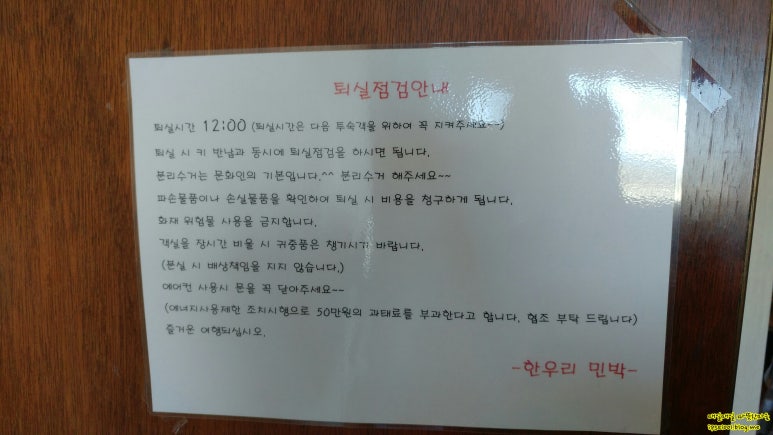 퇴실점검안내
퇴실시간 12:00 (퇴실시간은 다음 투숙객을 위하여 꼭 지켜주세요~~)
퇴실 시 키 반납과 동시에 퇴실점검을 하시면 됩니다.
분리수거는 문화인의 기본입니다.^^ 분리수거 해주세요~~
파손물품이나 손실물품을 확인하여 퇴실 시 비용을 청구하게 됩니다.
화재 위험물 사용을 금지합니다.
객실을 장시간 비울 시 귀중품은 챙기시기 바랍니다.
(분실 시 배상책임을 지지 않습니다.)
에어컨 사용시 문을 꼭 닫아주세요~~
(에너지사용제한 조치시행으로 50만원의 과태료를 부과한다고 합니다. 협조 부탁 드립니다)
즐거운 여행되십시오.
-한우리 민박-